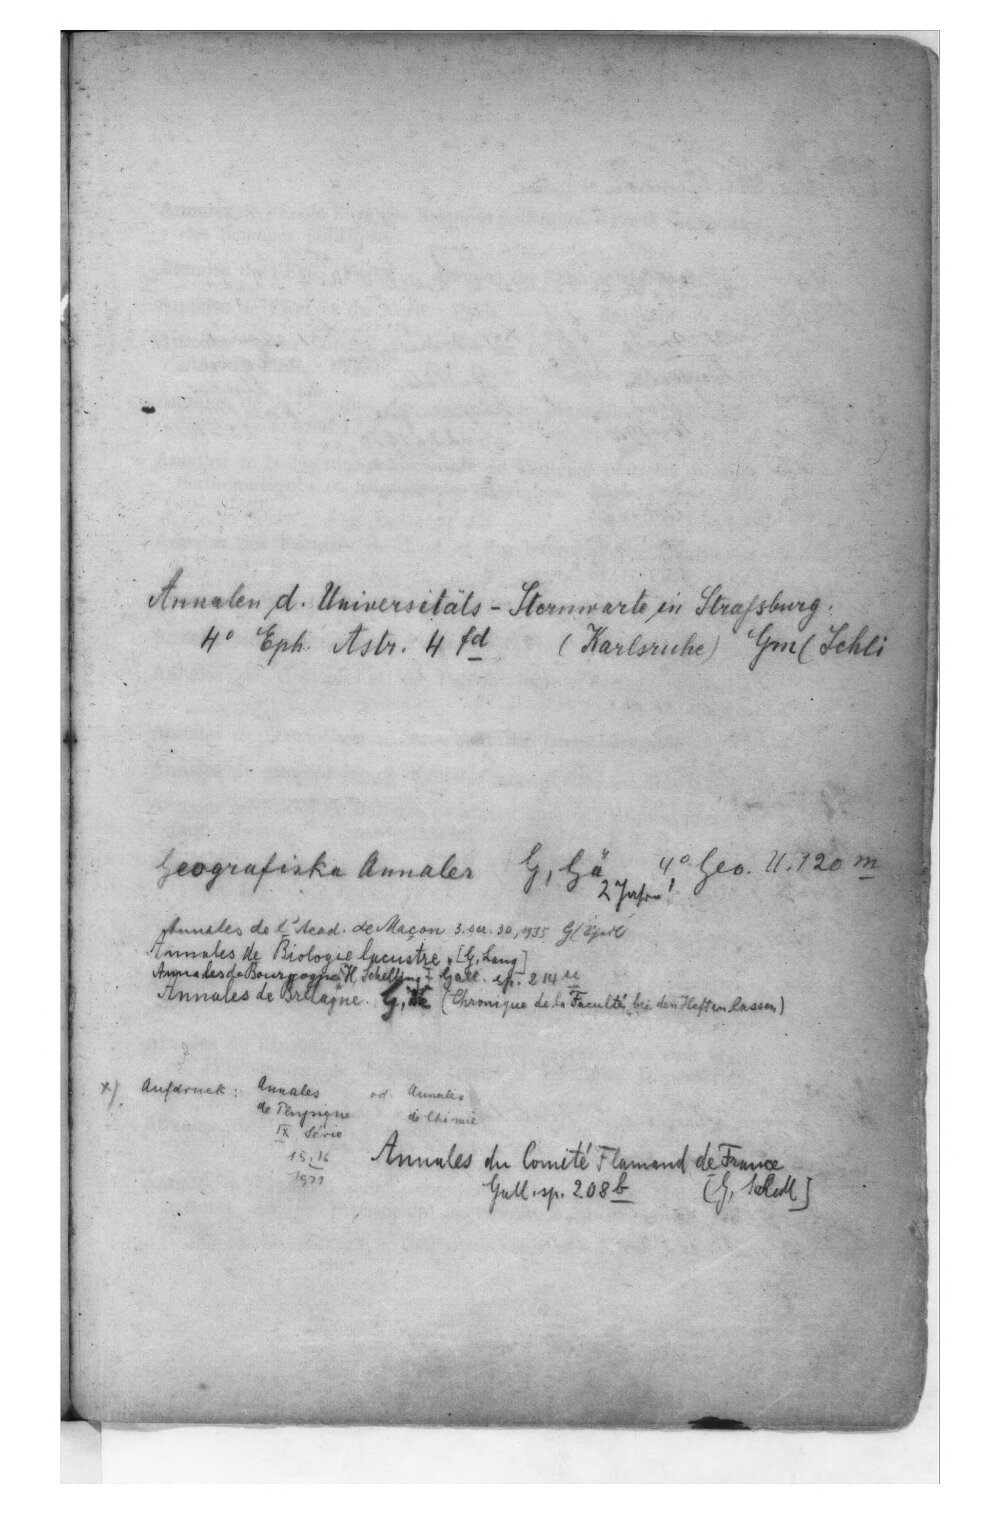 Annalen d. Universitäts-Sternwarte in Straßburg.
4° Eph. Astr. 4 fd (Karlsruhe) Gm( Schli
Geografiska Annaler G, Gä 4° Geo. U. 120 m
Annales de l'Acad. de Maçon 3. sér. 30, 1935
Annales de Biologie lacustre. [G, Lang]
Annales de Bourgogne H, Schelling I Gall. sp. 214 u
Annales de Bretagne. G, (Chronique de la Faculté bei den Heften lassen)
x) Aufdruck: Annales od. Annales
de Physique de Chimie
IX Série
15, 16
1921
Annales du Comité Flamand de France
Gall. sp. 208 b [G, Schell]